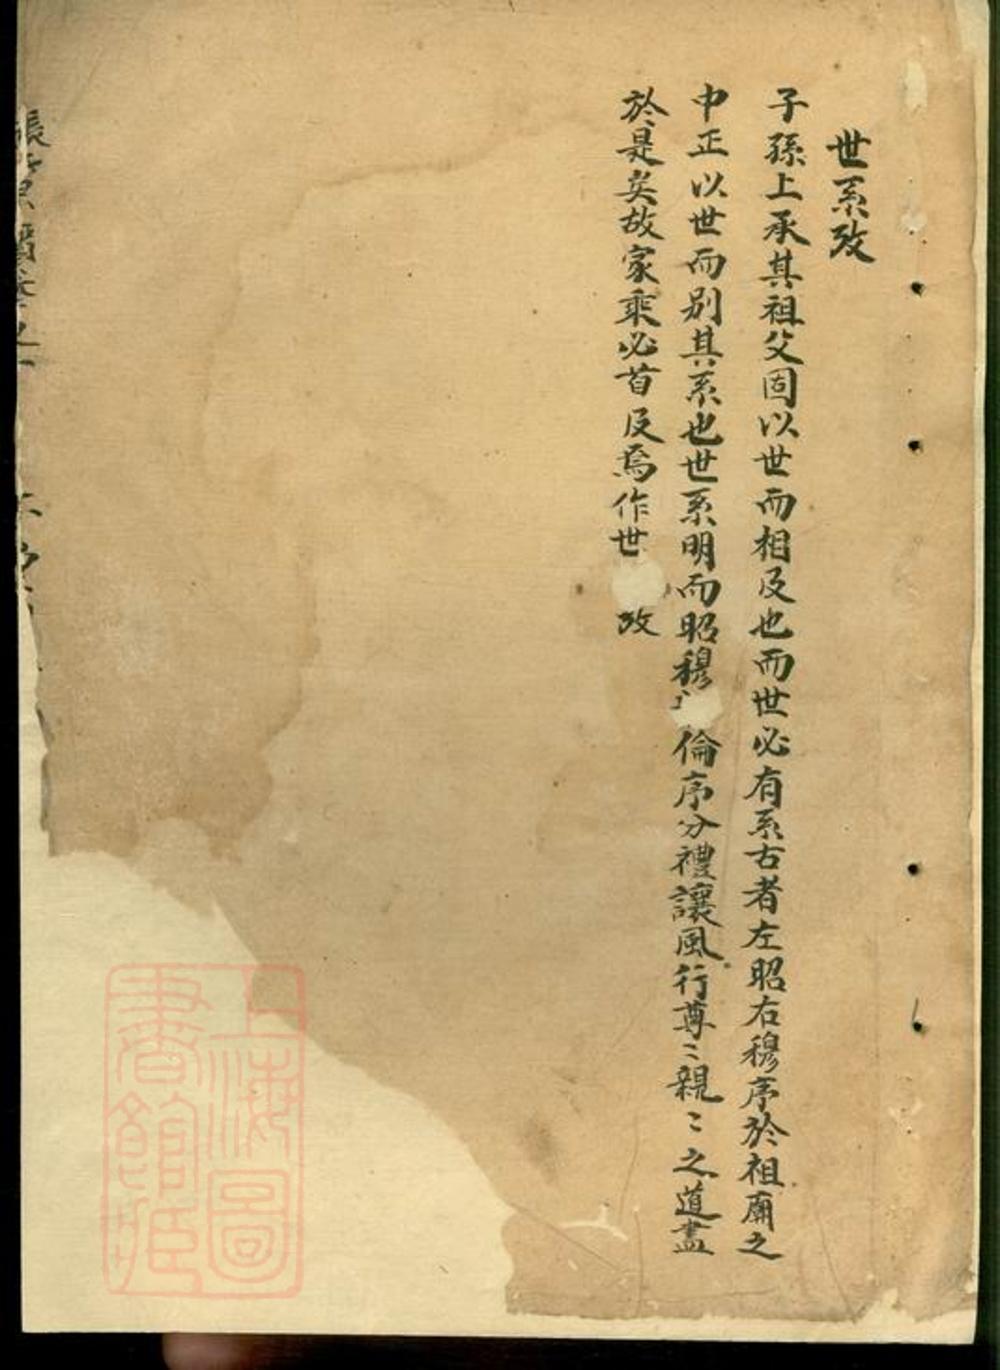 世系攷
子孫上承其祖父固以世而相及也而世必有系古者左昭右穆序於祖廟之
中正以世而别其系也世系明而昭穆倫序分禮讓風行尊〻親〻之道盡
於是矣故家乘必首及焉作世攷
上海圖
書館藏